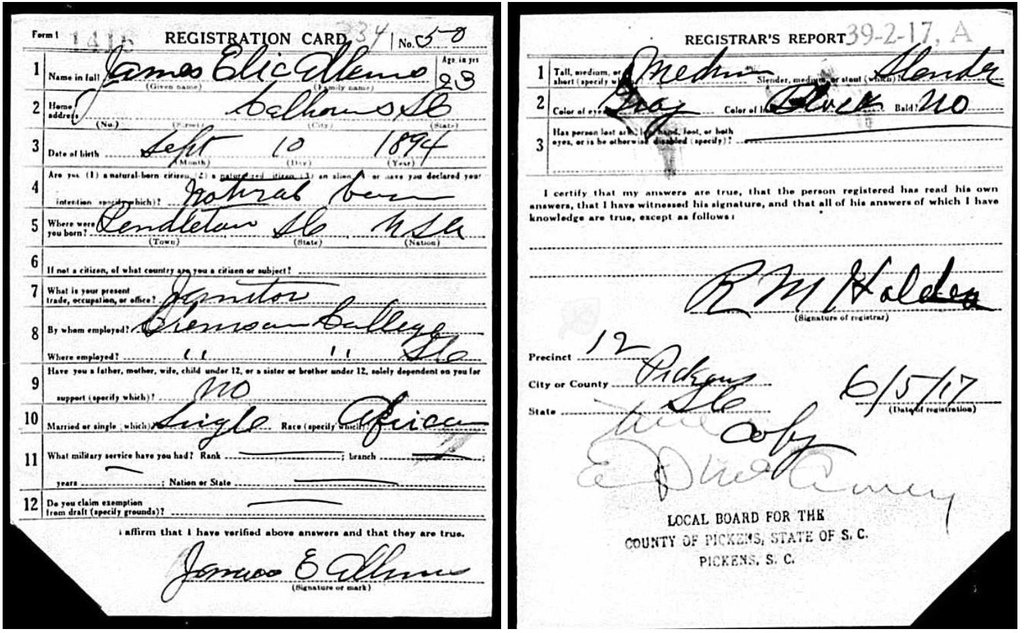 Form 1 1416 REGISTRATION CARD 334 No. 50
1 Name in full James Elic Age, in yrs 23
(Given name) (Family name)
2 Home address Calhoun SC
(No.) (Street) (City) (State)
3 Date of birth Sept 10 1894
(Month) (Day) (Year)
4 Are you (1) a natural-born citizen, (2) a naturalized citizen, (3) an alien, (4) or have you declared your
intention (specify which)? natural born
5 Where were you born? Pendleton SC USA
(Town) (State) (Nation)
6 If not a citizen, of what country are you a citizen or subject?
7 What is your present trade, occupation, or office? Janitor
8 By whom employed? Clemson College
Where employed? " " SC
9 Have you a father, mother, wife, child under 12, or a sister or brother under 12, solely dependent on you for
support (specify which)? NO
10 Married or single (which)? Single Race (specify which)? African
11 What military service have you had? Rank ; branch ;
years ; Nation or State
12 Do you claim exemption from draft (specify grounds)?
I affirm that I have verified above answers and that they are true.
James E
(Signature or mark)
REGISTRAR'S REPORT 39-2-17, A
1 Tall, medium, or short (specify which)? Medium Slender, medium, or stout (which)? Slender
2 Color of eyes? Gray Color of hair? Black Bald? NO
3 Has person lost arm, leg, hand, foot, or both
eyes, or is he otherwise disabled (specify)?
I certify that my answers are true, that the person registered has read his own
answers, that I have witnessed his signature, and that all of his answers of which I have
knowledge are true, except as follows:
R M Holden
(Signature of registrar)
Precinct 12
City or County Pickens
State SC 6/5/17
(Date of registration)
True Coby
LOCAL BOARD FOR THE
COUNTY OF PICKENS, STATE OF S. C.
PICKENS, S. C.